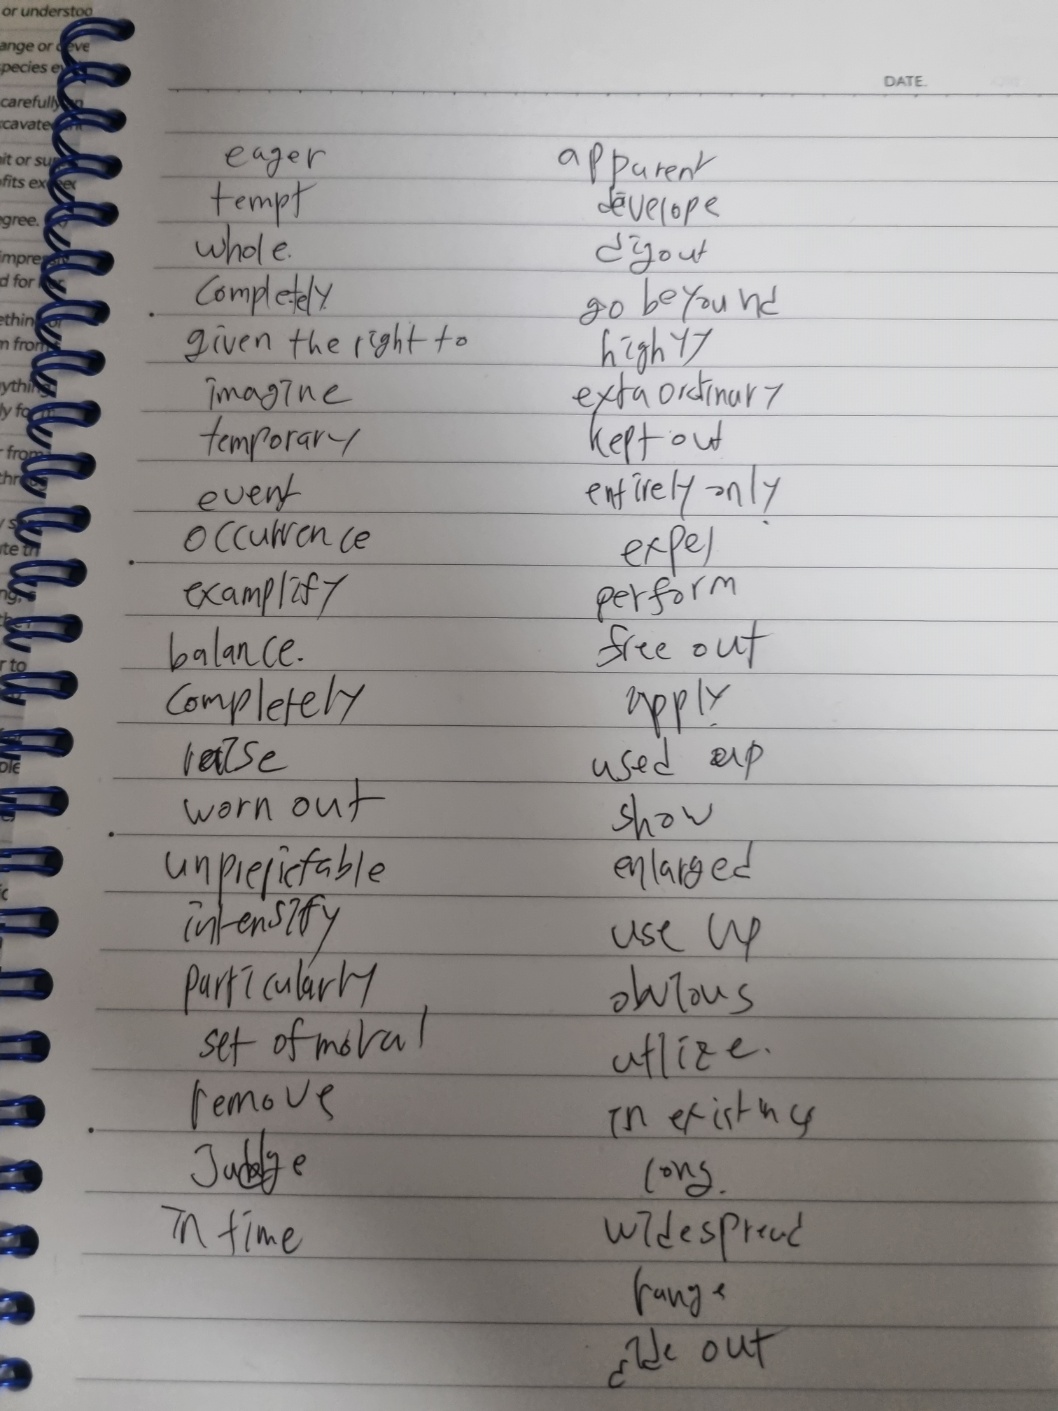 or understoo
ange or deve
species e
carefully
xcavate
it or su
fits ex
egree.
impre
d for
ethin
n from
ything
ly fo
from
thr
r to
DATE.
eager
tempt
whole.
Completely
given the right to
imagine
temporary
event
occurrence
examplify
balance.
Completely
raise
worn out
intensify
particularly
set of moral
remove
Judge
in time
apparent
develope
digout
go beyound
highyy
extraordinary
kept out
entirely only
expel
perform
free out
apply
used up
show
enlarged
use up
obvious
utlize.
long.
widespread
range
out